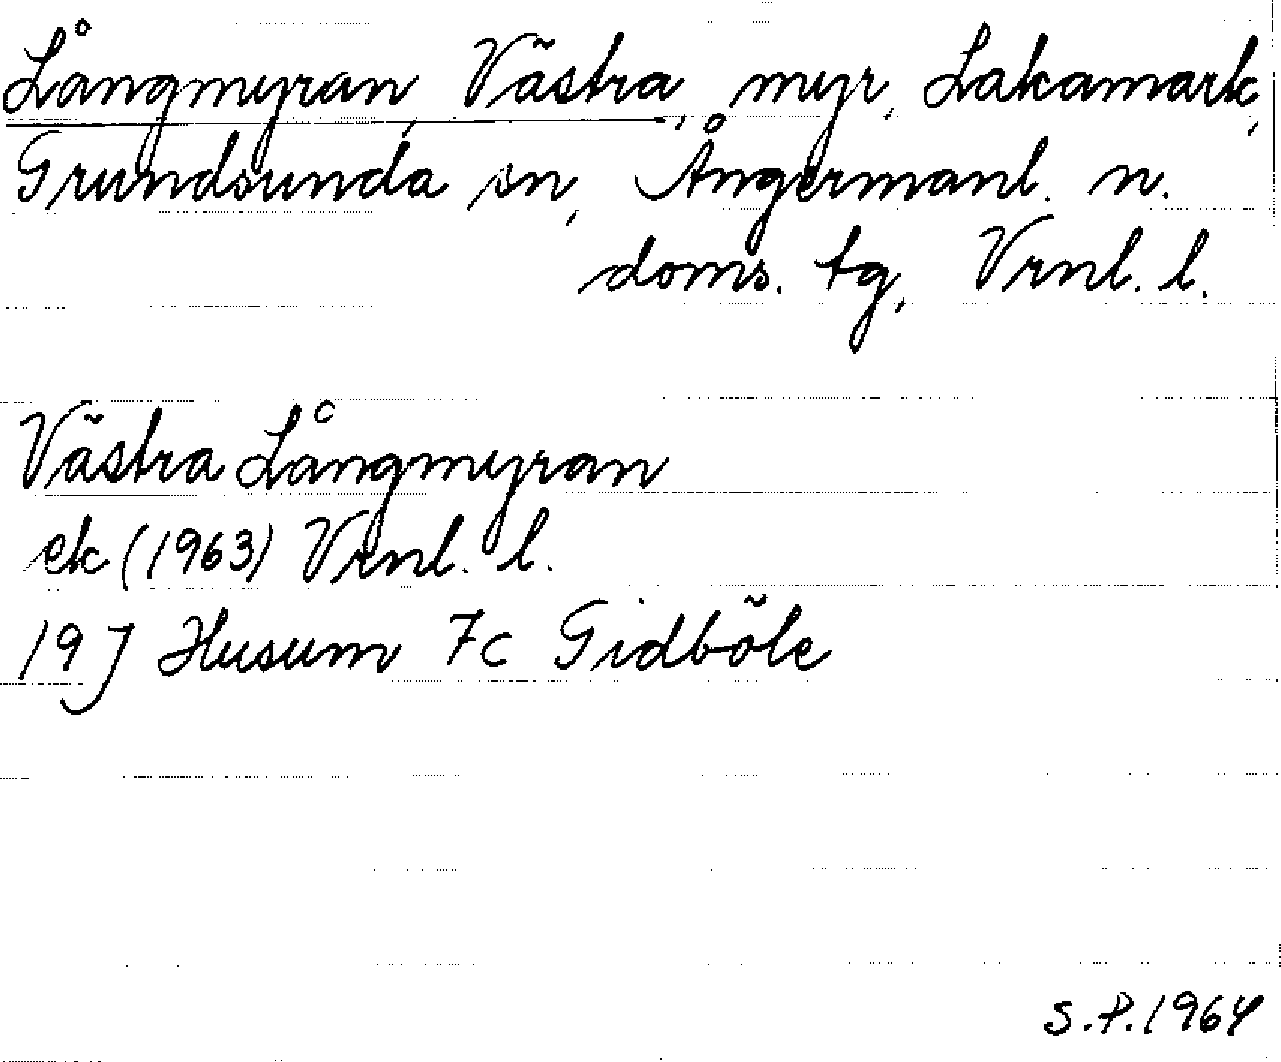 Långmyran, Västra, myr, Lakamark,
Grundsunda sn, Ångermanl. n.
doms. tg, Vrnl. l.
Västra Långmyran
ek (1963) Vrnl. l.
19 J Husum 7c Gidböle
S.P. 1964